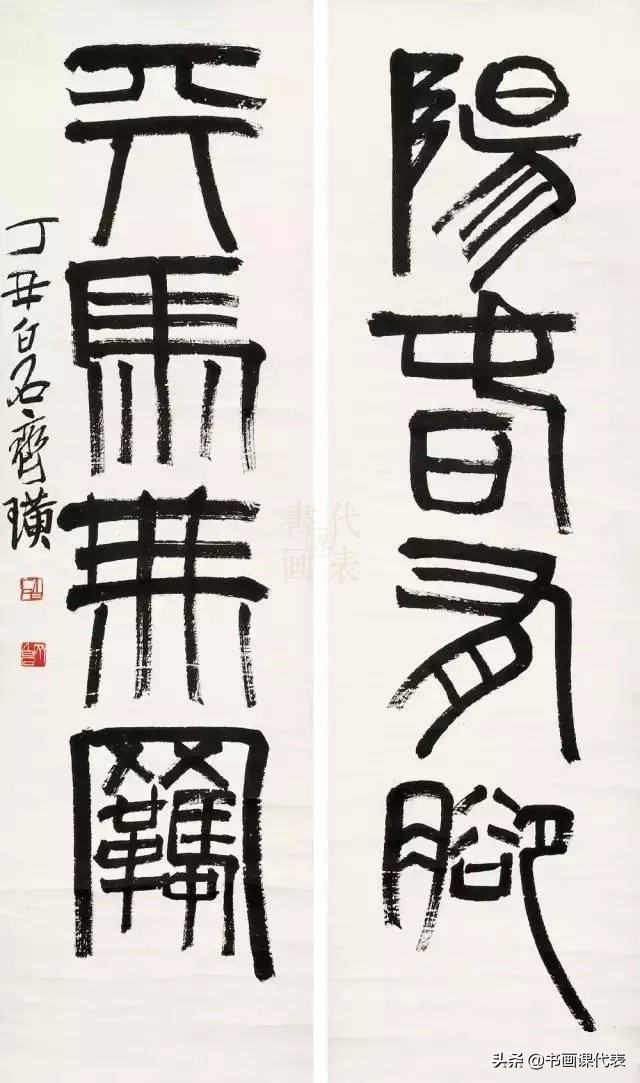 陽春有腳
天馬無羈
丁丑白石齊璜
書画
代表
头条 @书画课代表